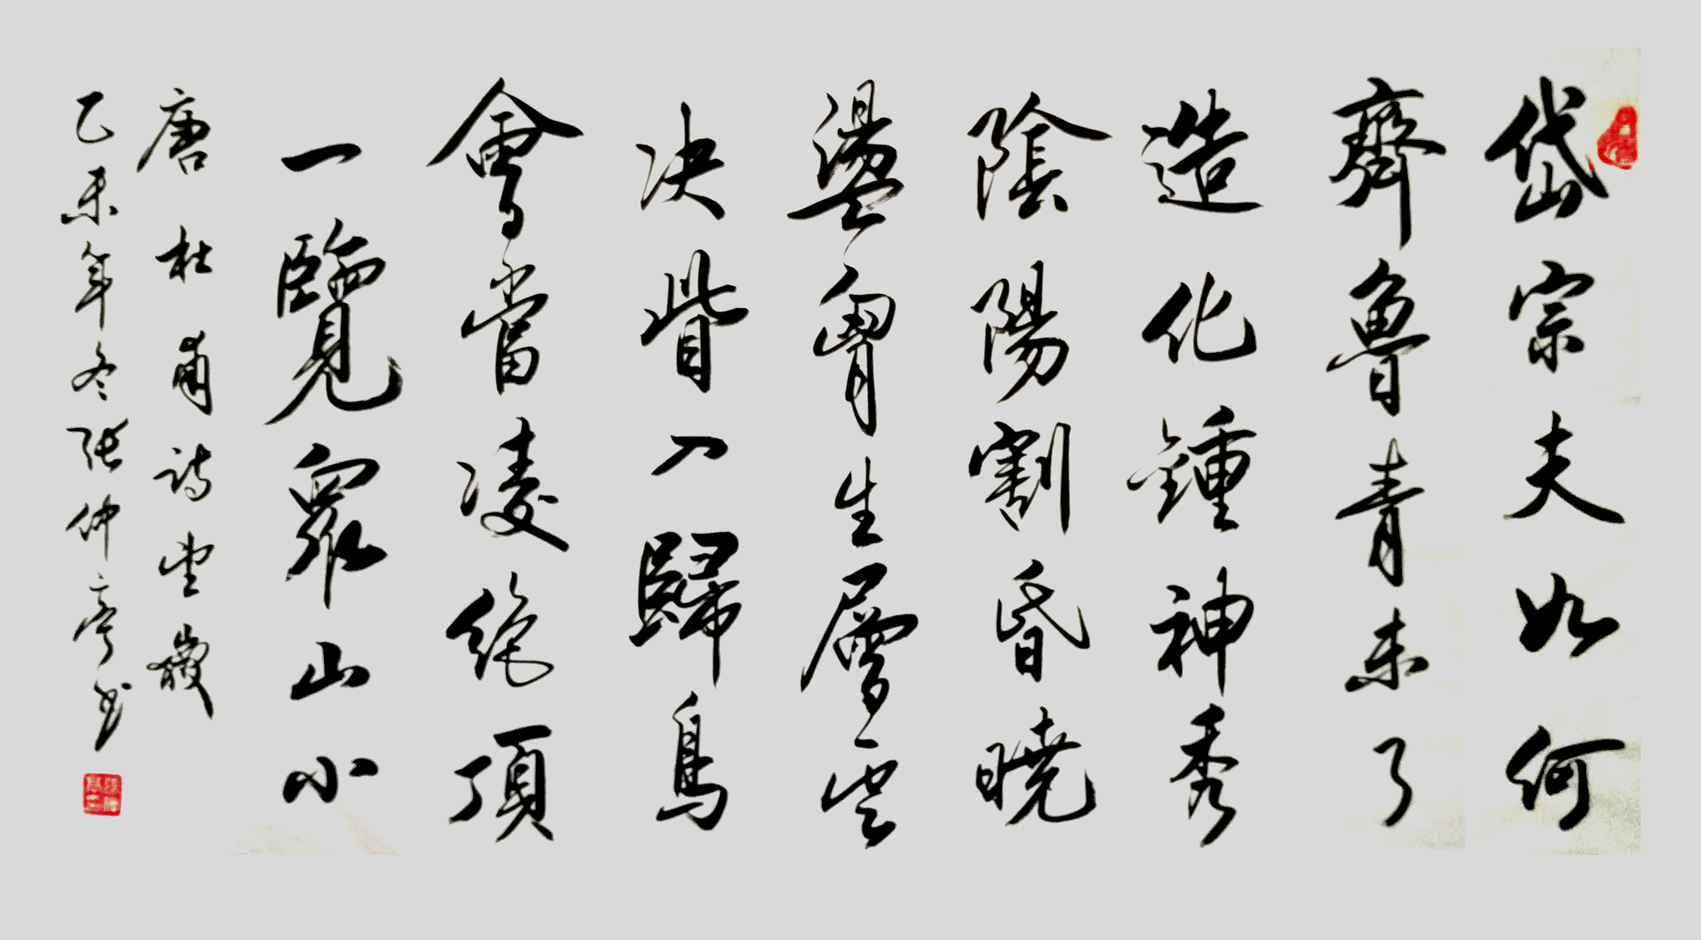 岱宗夫如何
齊魯青未了
造化鍾神秀
陰陽割昏曉
盪胷生層雲
决眥入歸鳥
會當凌絶頂
一覽衆山小
唐杜甫詩望嶽
乙未年冬張仲亭书